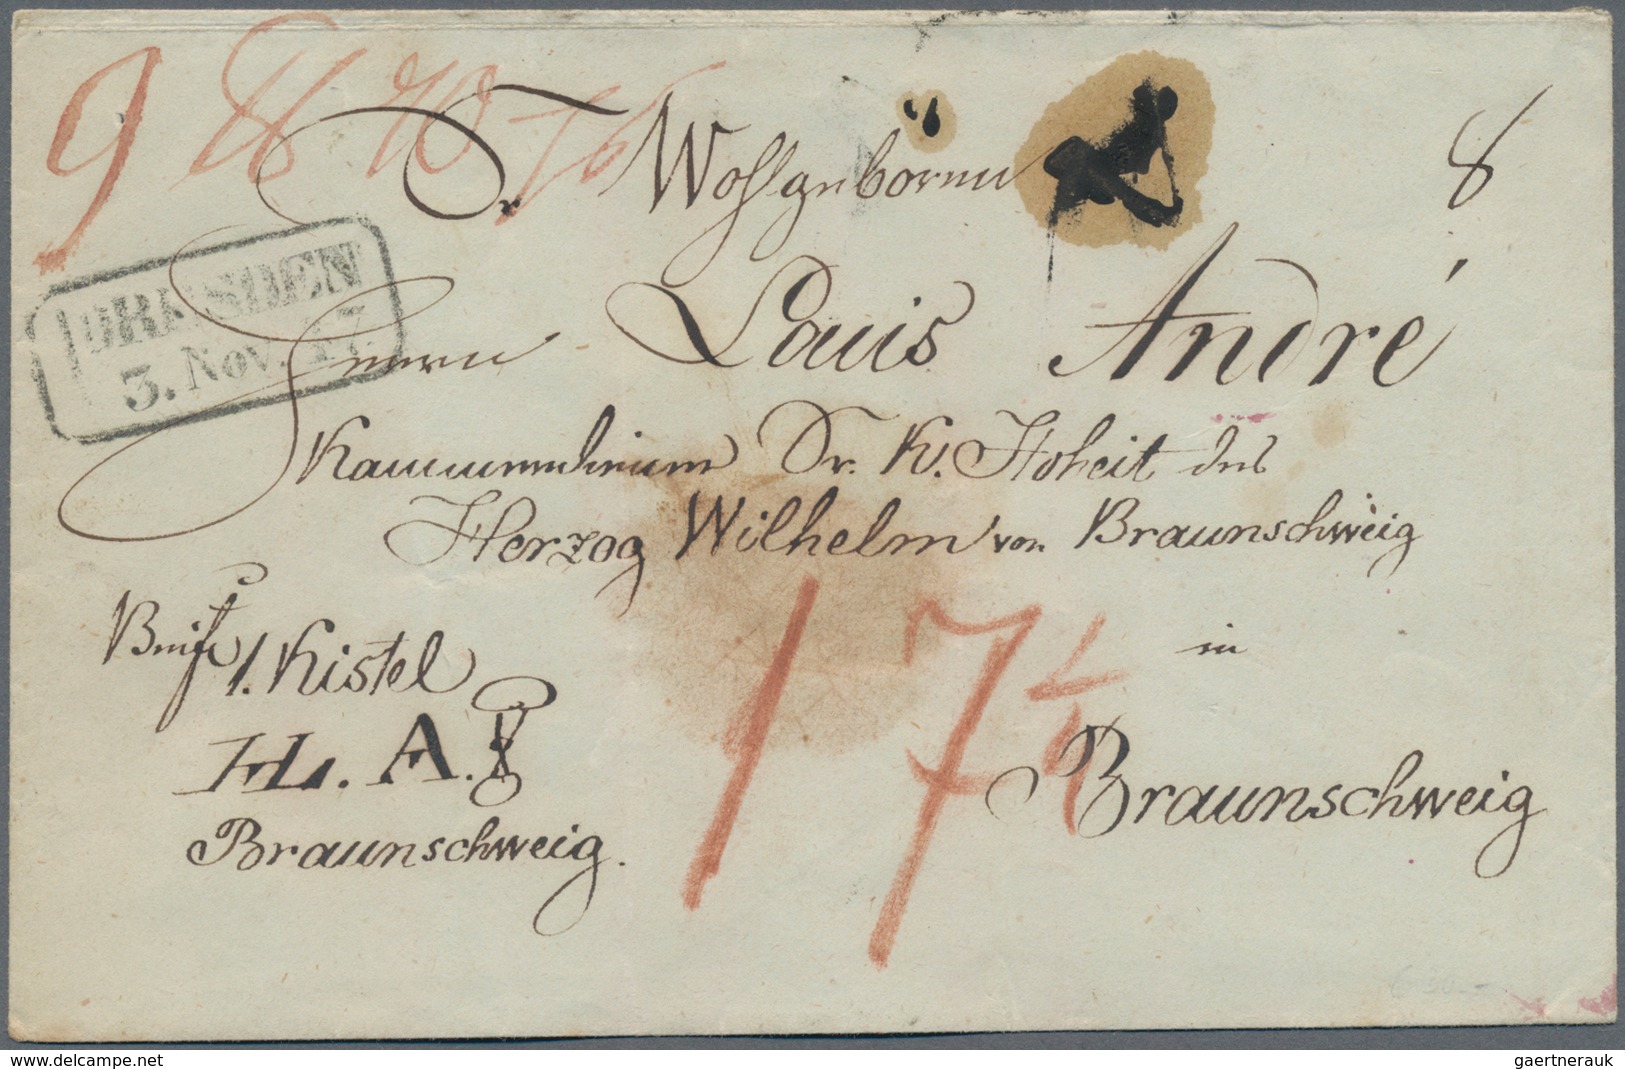 9 ℔ 10
8
Sr. Wohlgeboren
DRESDEN
3. Nov. 47
Herrn Louis André
Kammerdiener Sr. K. Hoheit des
Herzog Wilhelm von Braunschweig
in
1 7 1/4
Braunschweig
1. Kistel
H L. A.
Braunschweig.
gaertnerauk
www.delcampe.net